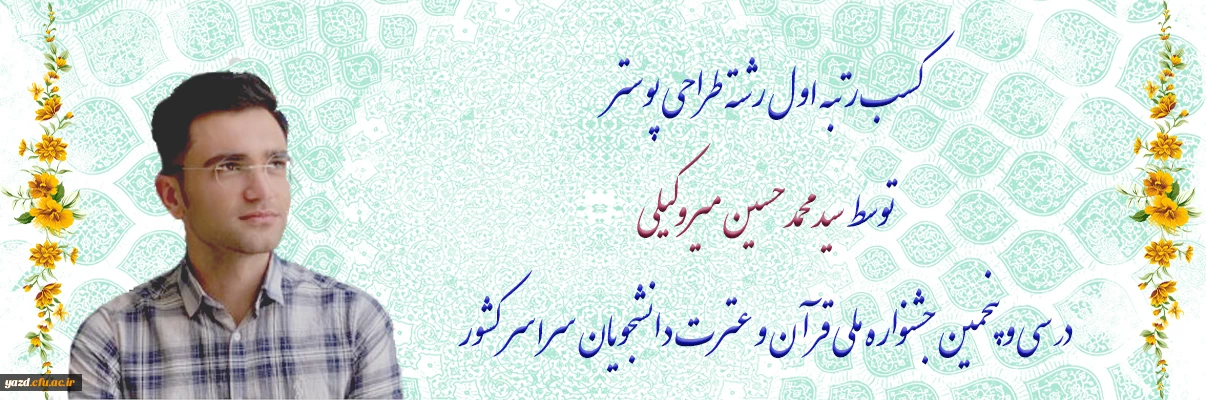 کسب رتبه اول رشته طراحی پوستر
توسط سید محمد حسین میروکیلی
در سی و پنجمین جشنواره ملی قرآن و عترت دانشجویان سراسر کشور
yazd.cfu.ac.ir